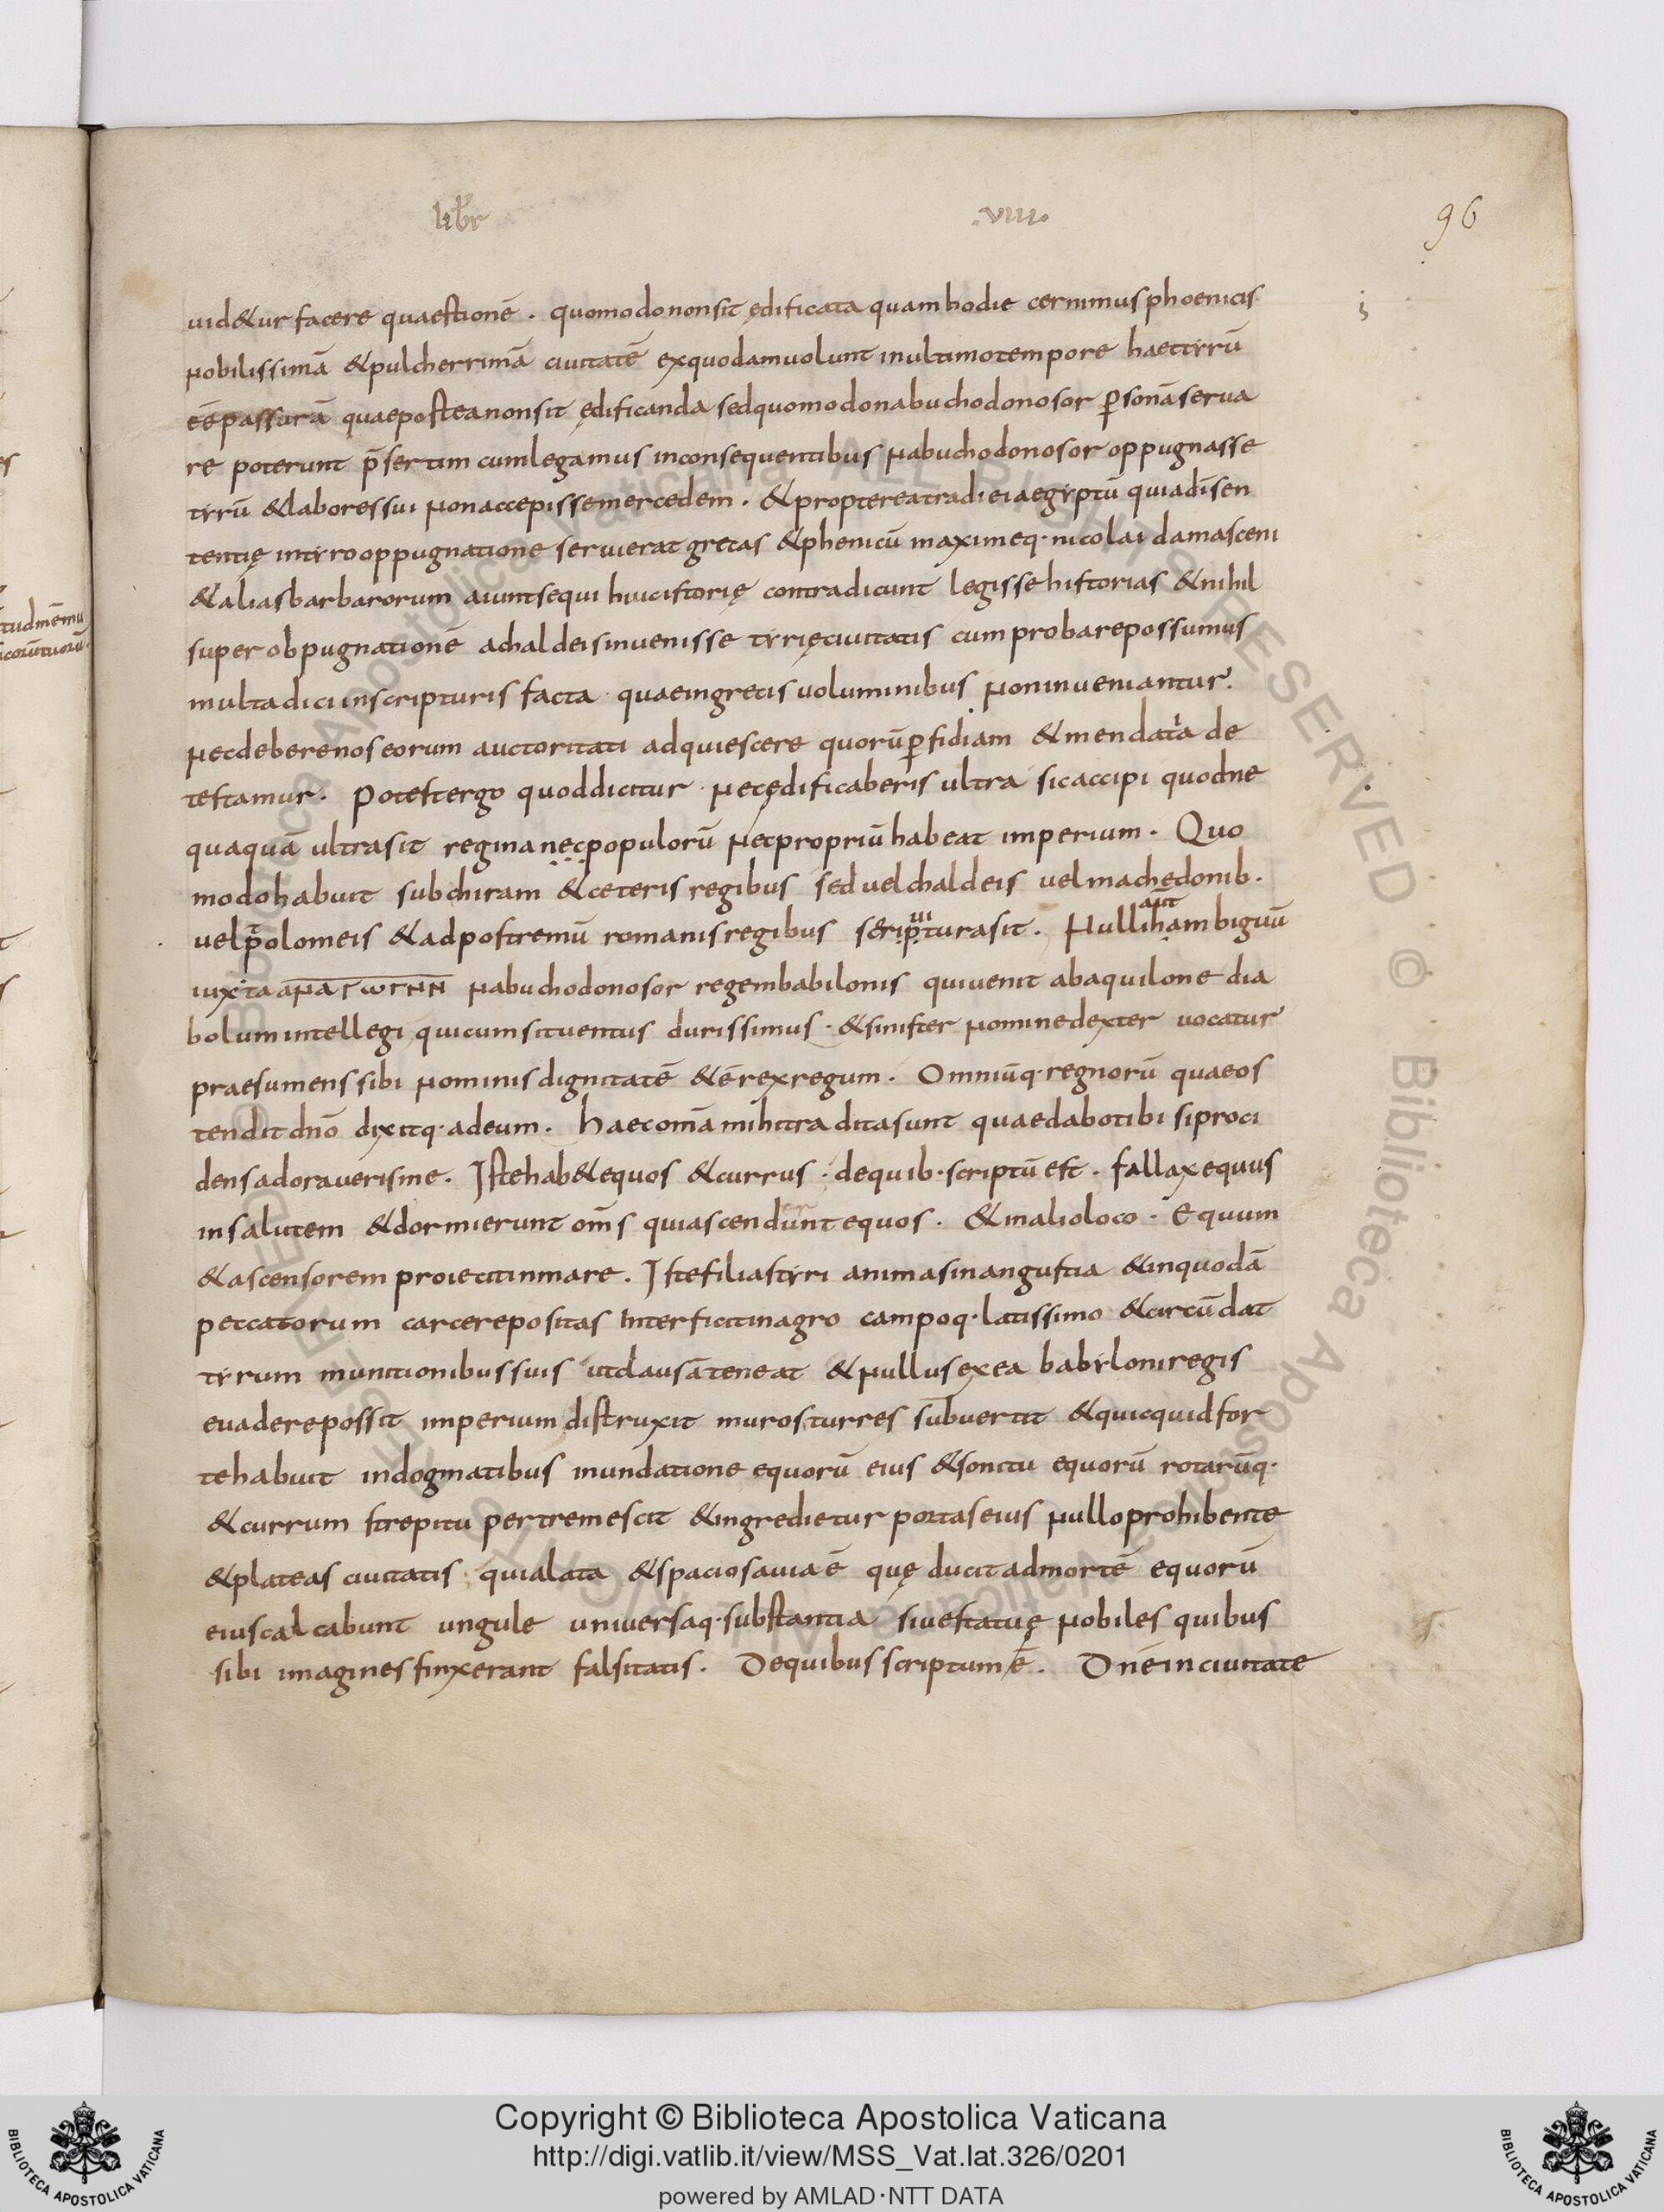 libr .VIIII. 96
uid&ur facere quaestionē . quomodo non sit ędificata quam hodie cernimus phoenicis
nobilissimā & pulcherrimā ciuitatē ex quo dam uolunt in ultimo tempore haec tirrū
eē passurā quae postea non sit ędificanda sed quomodo nabuchodonosor ꝑsonā serua
re poterunt p̄sertim cum legamus in consequentibus nabuchodonosor oppugnasse
tirrū & labores sui non accepisse mercedem . & propterea tradi ei aegiptū quia dīsen
tentię in tirro oppugnatione seruierat grecas & phenicū maximeq· nicolai damasceni
& alias barbarorum aiunt se qui huic istorię contradicunt legisse historias & nihil
super obpugnationē a chaldeis inuenisse tirrię ciuitatis cum probare possumus
multa dici in scripturis facta · quae in grecis uoluminibus non inueniantur.
nec debere nos eorum auctoritati adquiescere quorū ꝑfidiam & mendatia de
testamur. Potest ergo quod dicitur · nec ędificaberis ultra sic accipi quod ne
quaquā ultra sit regina nec populorū nec propriū habeat imperium . Quo
modo habuit sub chiram & ceteris regibus sed uel chaldeis uel machedonib.
aut
uel p̄olomeis & ad postremū romanis regibus scripturasit . Nulli h ambiguū
iuxta anaγωγηn nabuchodonosor regem babilonis qui uenit ab aquilone dia
bolum intellegi qui cum sit uentus durissimus . & sinister nomine dexter uocatur
praesumens sibi nominis dignitatē & ē rex regum . Omniūq· regnorū quae os
tendit dnō dixitq· ad eum . haec omā mihi tradita sunt quae dabo tibi si proci
dens adoraueris me . Iste hab& equos & currus · de quib· scriptū est . fallax equus
in salutem & dormierunt om̄s qui ascendunt equos . & in alio loco . Equum
& ascensorem proiecit in mare . Iste filias tirri animas in angustia & in quodā
peccatorum carcere positas interficit in agro campoq· latissimo & circūdat
tirrum munitionibus suis ut clausā teneat & nullus ex ea babiloni regis
euadere possit imperium distruxit muros turres subuertit & quicquid for
te habuit in dogmatibus inundatione equorū eius & sonitu equorū rotarūq·
& currum strepitu pertremescit & ingredietur portas eius nullo prohibente
& plateas ciuitatis · quia lata & spaciosa uia ē quę ducit ad mortē equorū
eius calcabunt ungule uniuersaq· substantia siue statuę nobiles quibus
sibi imagines finxerant falsitatis . De quibus scriptum ē . Dnē in ciuitate
Copyright © Biblioteca Apostolica Vaticana
http://digi.vatlib.it/view/MSS_Vat.lat.326/0201
powered by AMLAD·NTT DATA
BIBLIOTECA APOSTOLICA VATICANA
BIBLIOTECA APOSTOLICA VATICANA